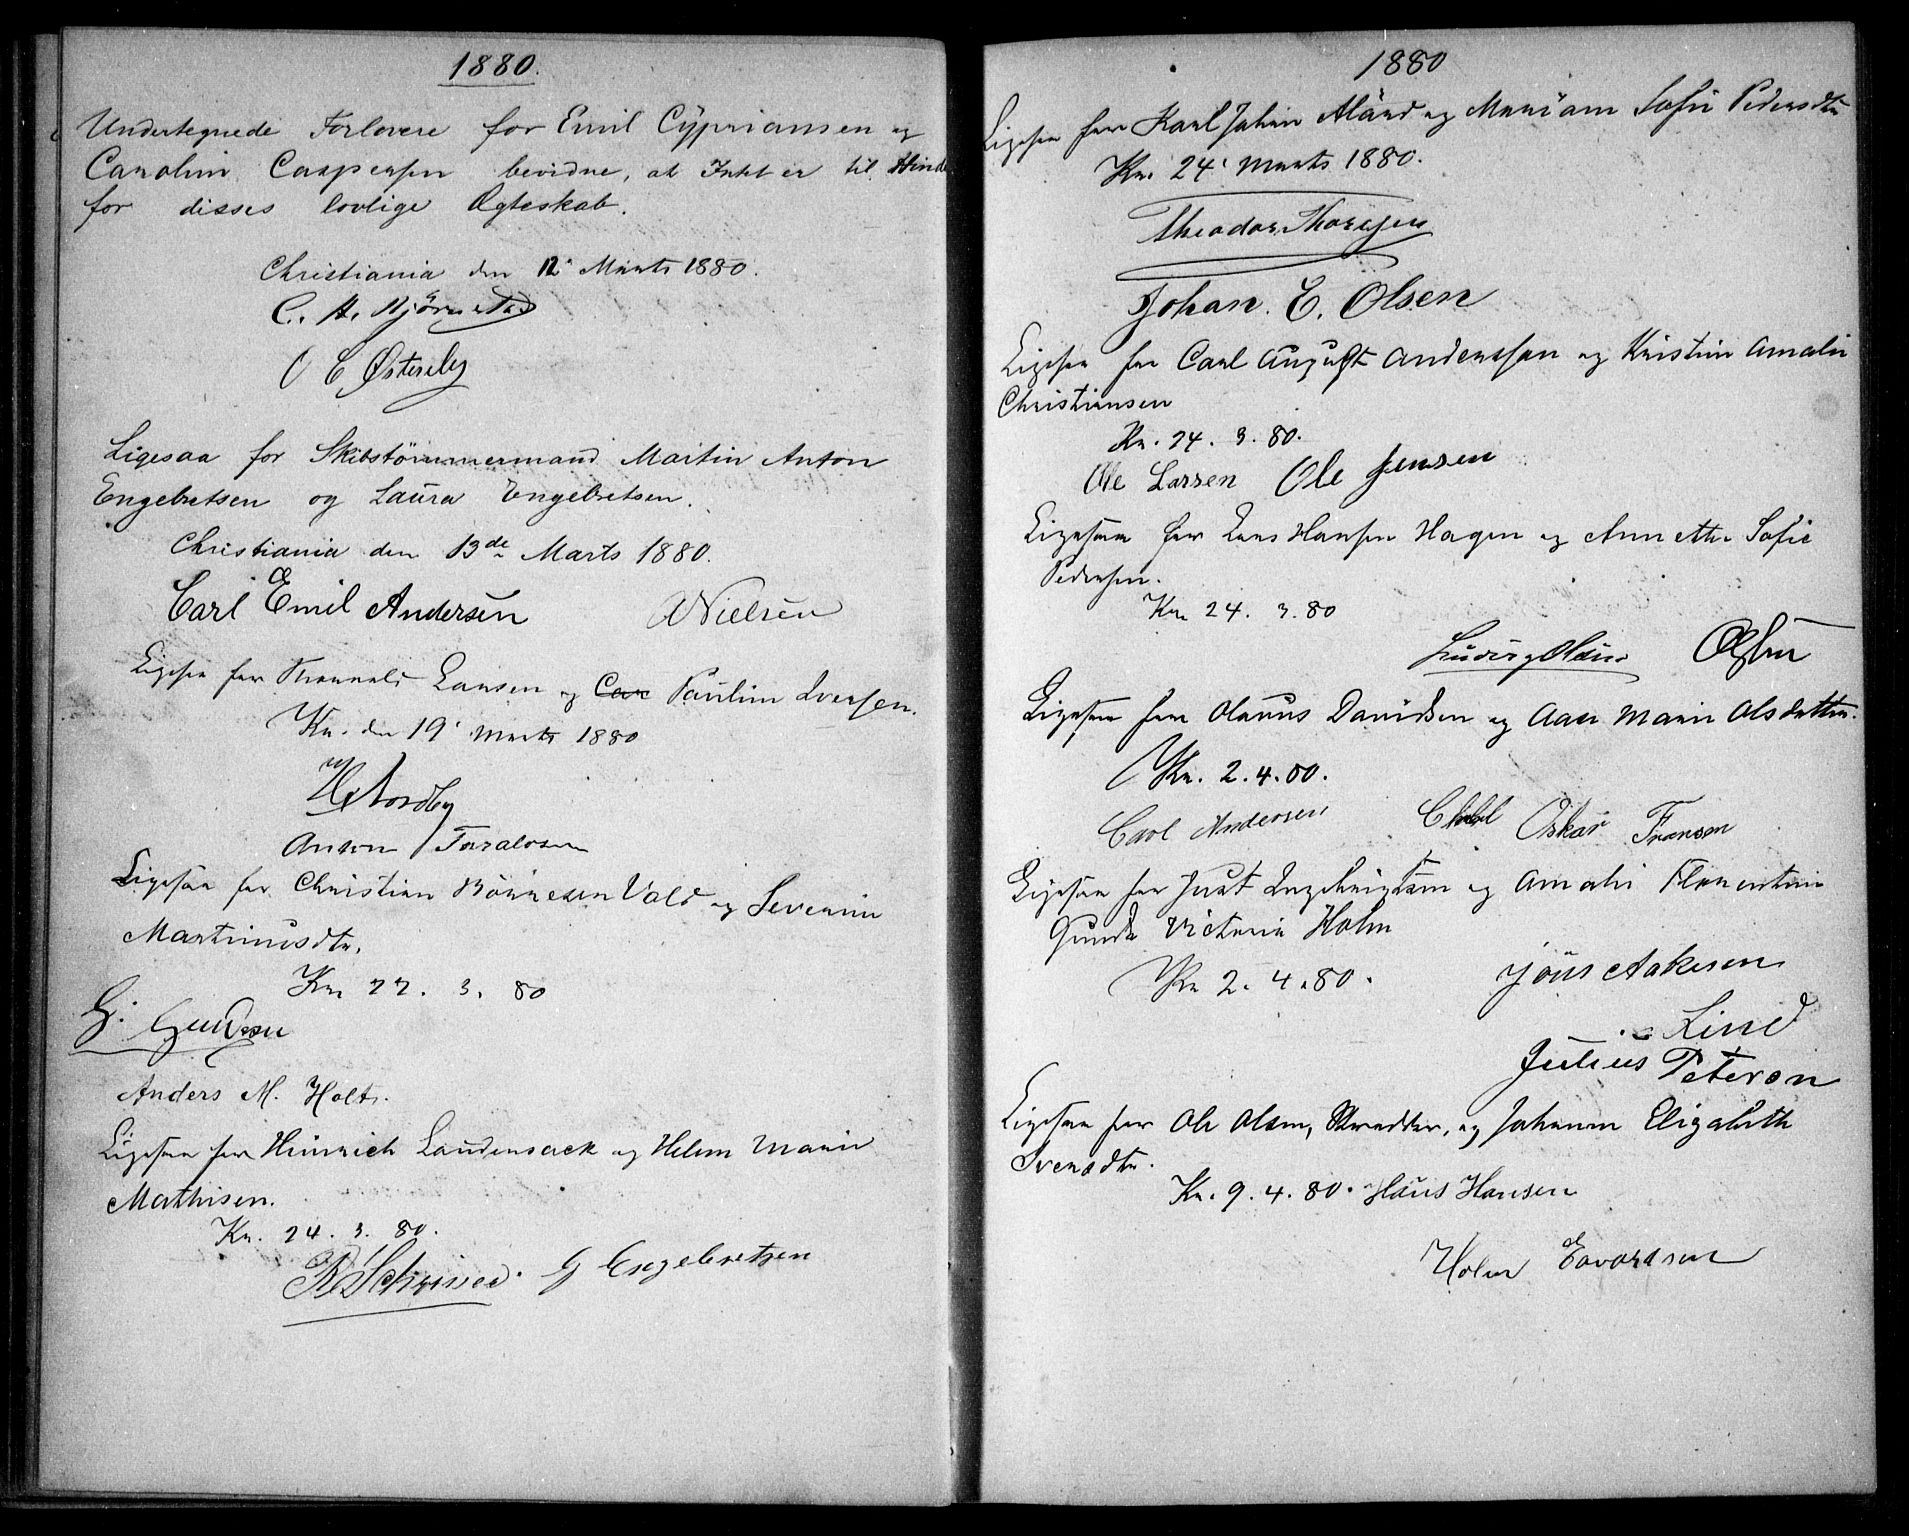 1880.
Undertegnede Forlovere for Emil Cÿpriansen og
Carolin Caspersen bevidne, at Intet er til Hinder
for disses lovlige Ægteskab.
Christiania den 12' Marts 1880.
C. A. Bjørnstad
O E Østereby
Ligesaa for Skibstömmermand Martin Anton
Engebretsen og Laura Engebretsen.
Christiania den 13de Marts 1880.
Carl Emil Andersen Nielsen
Ligesaa for Thorvald Larsen og Car Paulin Iversen.
Kr. den 19' Marts 1880
H Nordby
Anton Toralvsen
Ligesaa for Christian Bönnesen Vold og Severin
Martinusdtr.
Kr. 22. 3. 80
G. Gundersen
Anders M. Holt.
Ligesaa for Heinrich Laudensack og Helene Marie
Mathisen.
Kr. 24. 3. 80.
G Engebretsen
1880
Ligesaa for Karl Johan Aländ og Mariam Sofie Pedersdtr
Kr. 24' Marts 1880.
Theodor Thoresen
Johan. E. Olsen
Ligesaa for Carl August Anderssen og Kristine Amalie
Christiansen
Kr. 24. 3. 80.
Ole Larsen Ole Jensen
Ligesaa for Lars Hansen Hagen og Annette Sofie
Pedersen.
Kr. 24. 3. 80
Ludvig Olsen Olsen
Ligesaa for Olaus Davidsen og Aase Marie Olsdatter.
Kr. 2. 4. 80.
Carl Andersen Carl Oskar Fransen
Ligesaa for Just Ingebrigtsen og Amalie Florentine
Gunda Victoria Holm
Kr 2. 4. 80.
Jöns Aakesen
Lind
Julius Peterson
Ligesaa for Ole Olsen, Skredder, og Johanne Elisabeth
Svensdtr.
Kr. 9. 4. 80. Hans Hansen
Holm Edvardsen